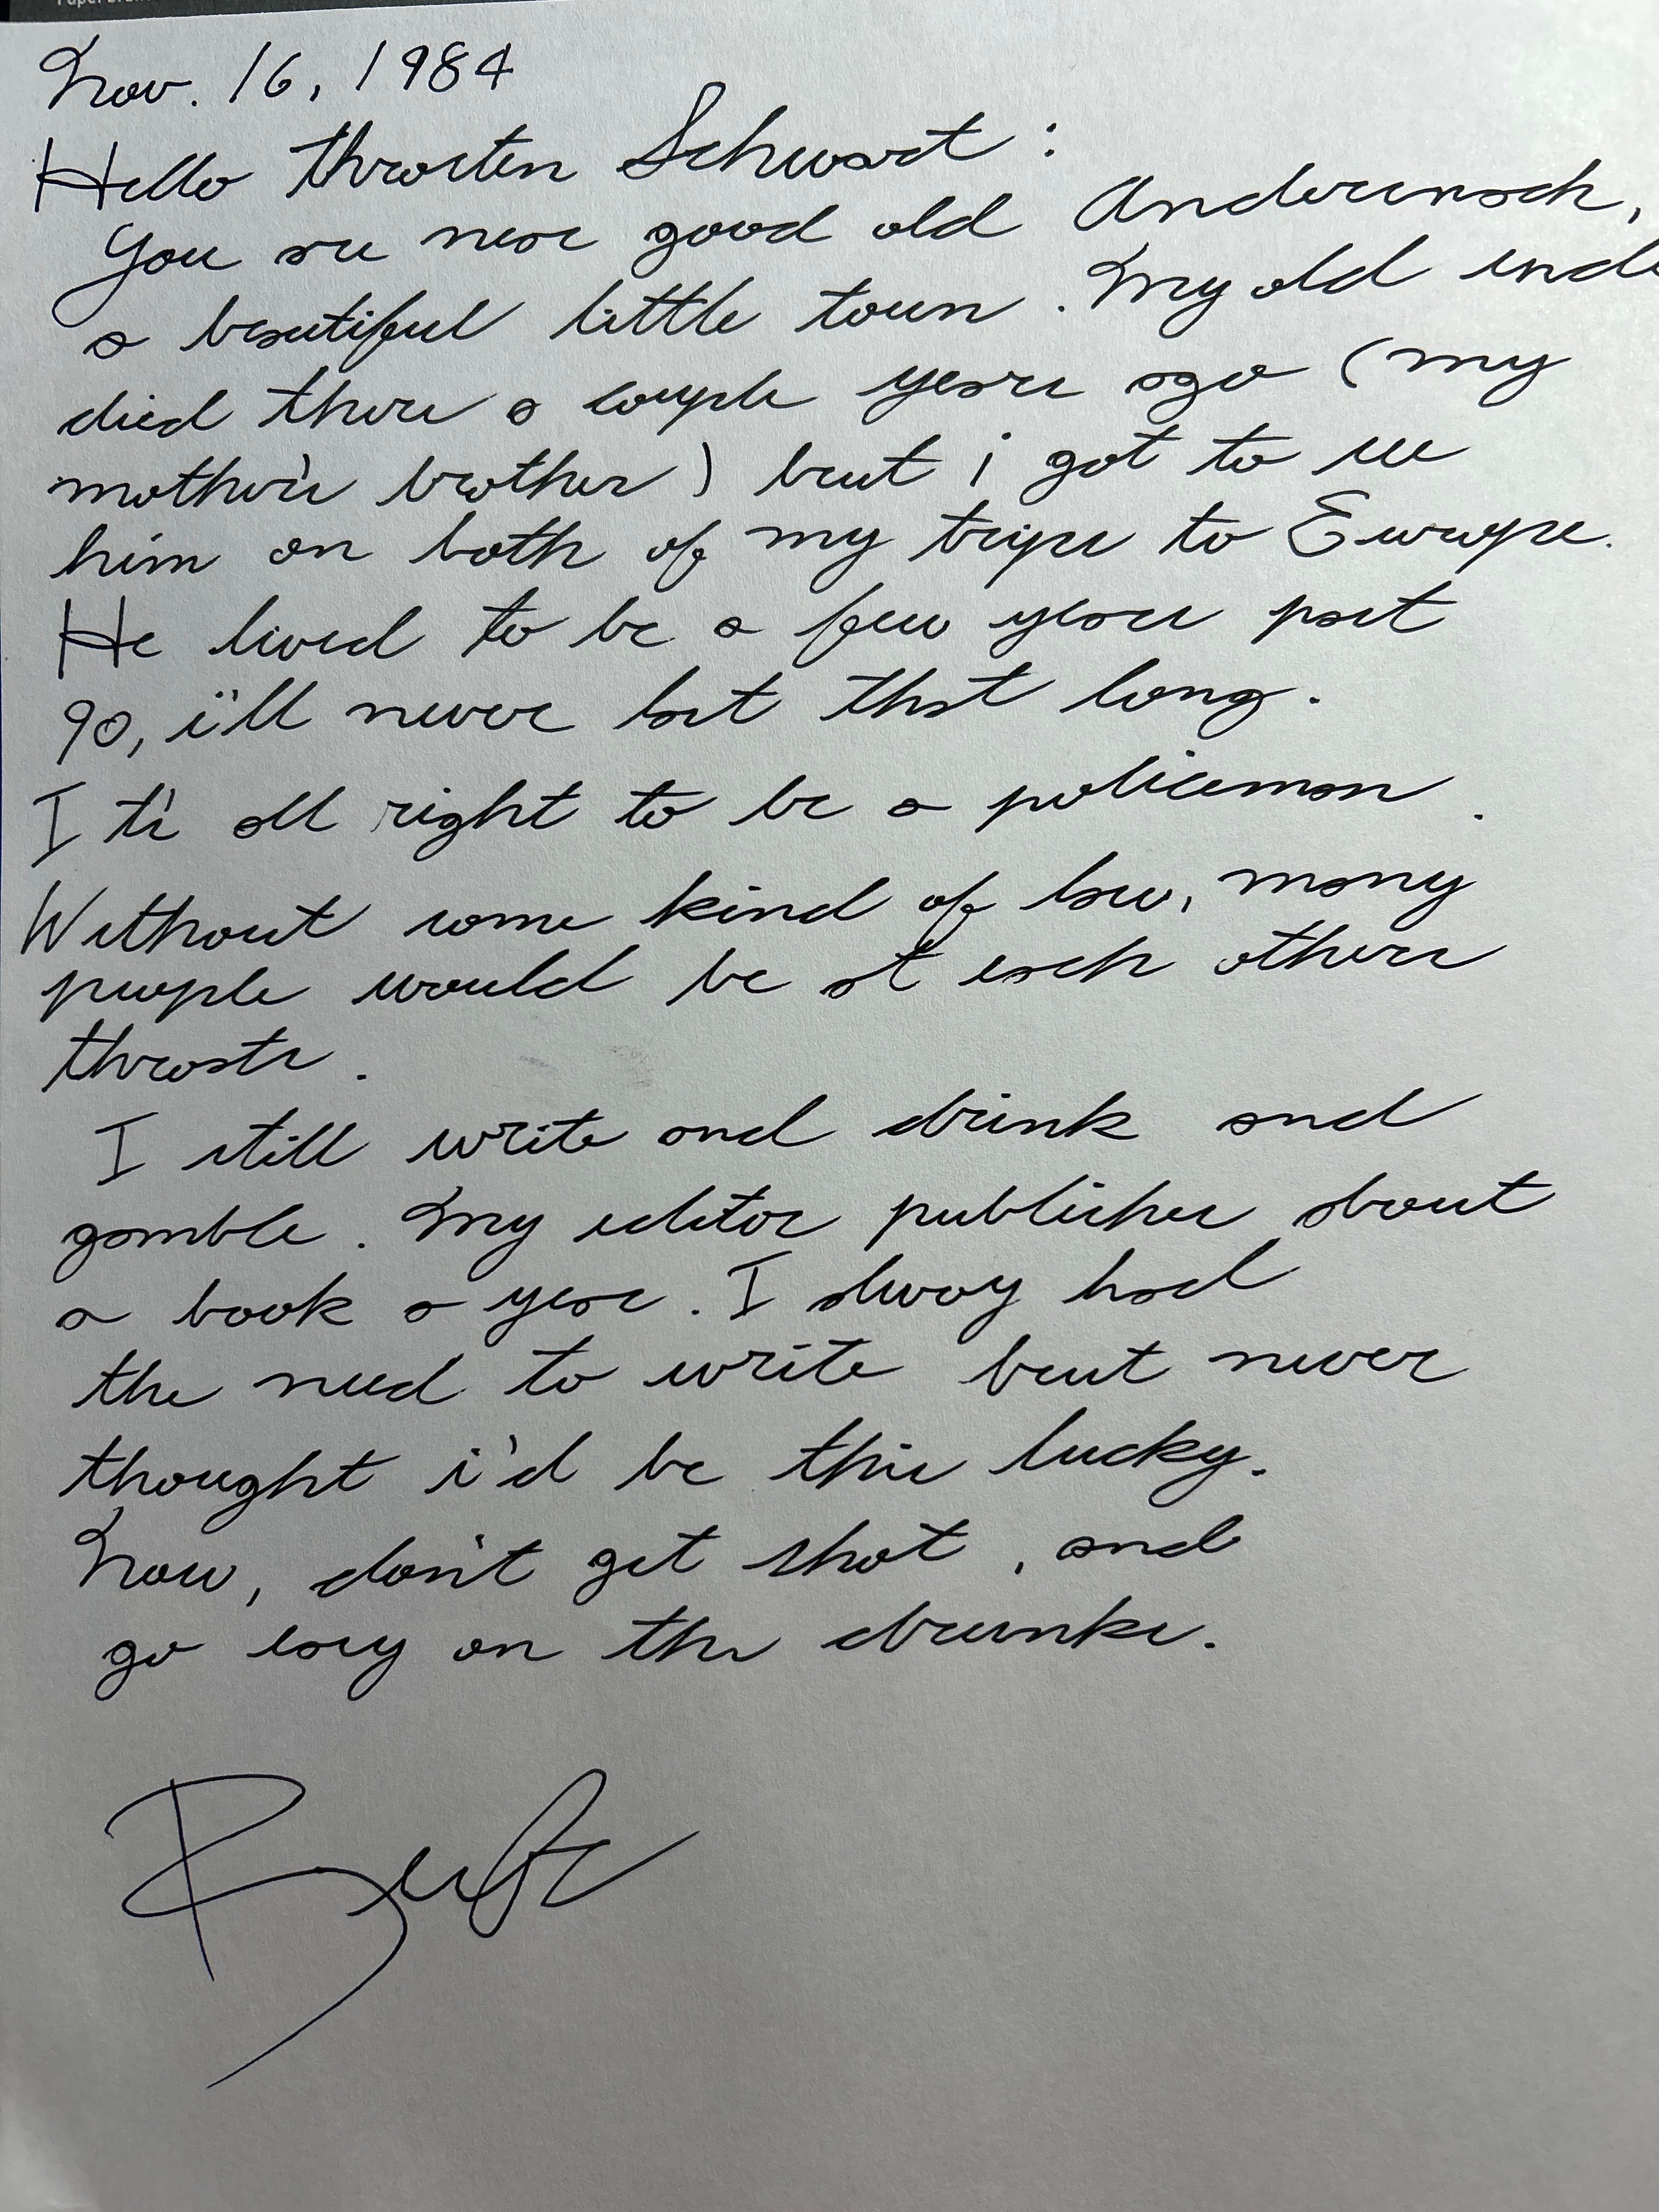 Nov. 16, 1984
Hello Throsten Schwart:
You are near good old Andernach,
a beautiful little town. My old uncle
died there a couple years ago (my
mother's brother) but i got to see
him on both of my trips to Europe.
He lived to be a few years past
90, i'll never last that long.
It's all right to be a policeman.
Without some kind of law, many
people would be at each others
throats.
I still write and drink and
gamble. My editor publishes about
a book a year. I alway had
the need to write but never
thought i'd be this lucky.
Now, don't get shot, and
go easy on the drunks.
Buk